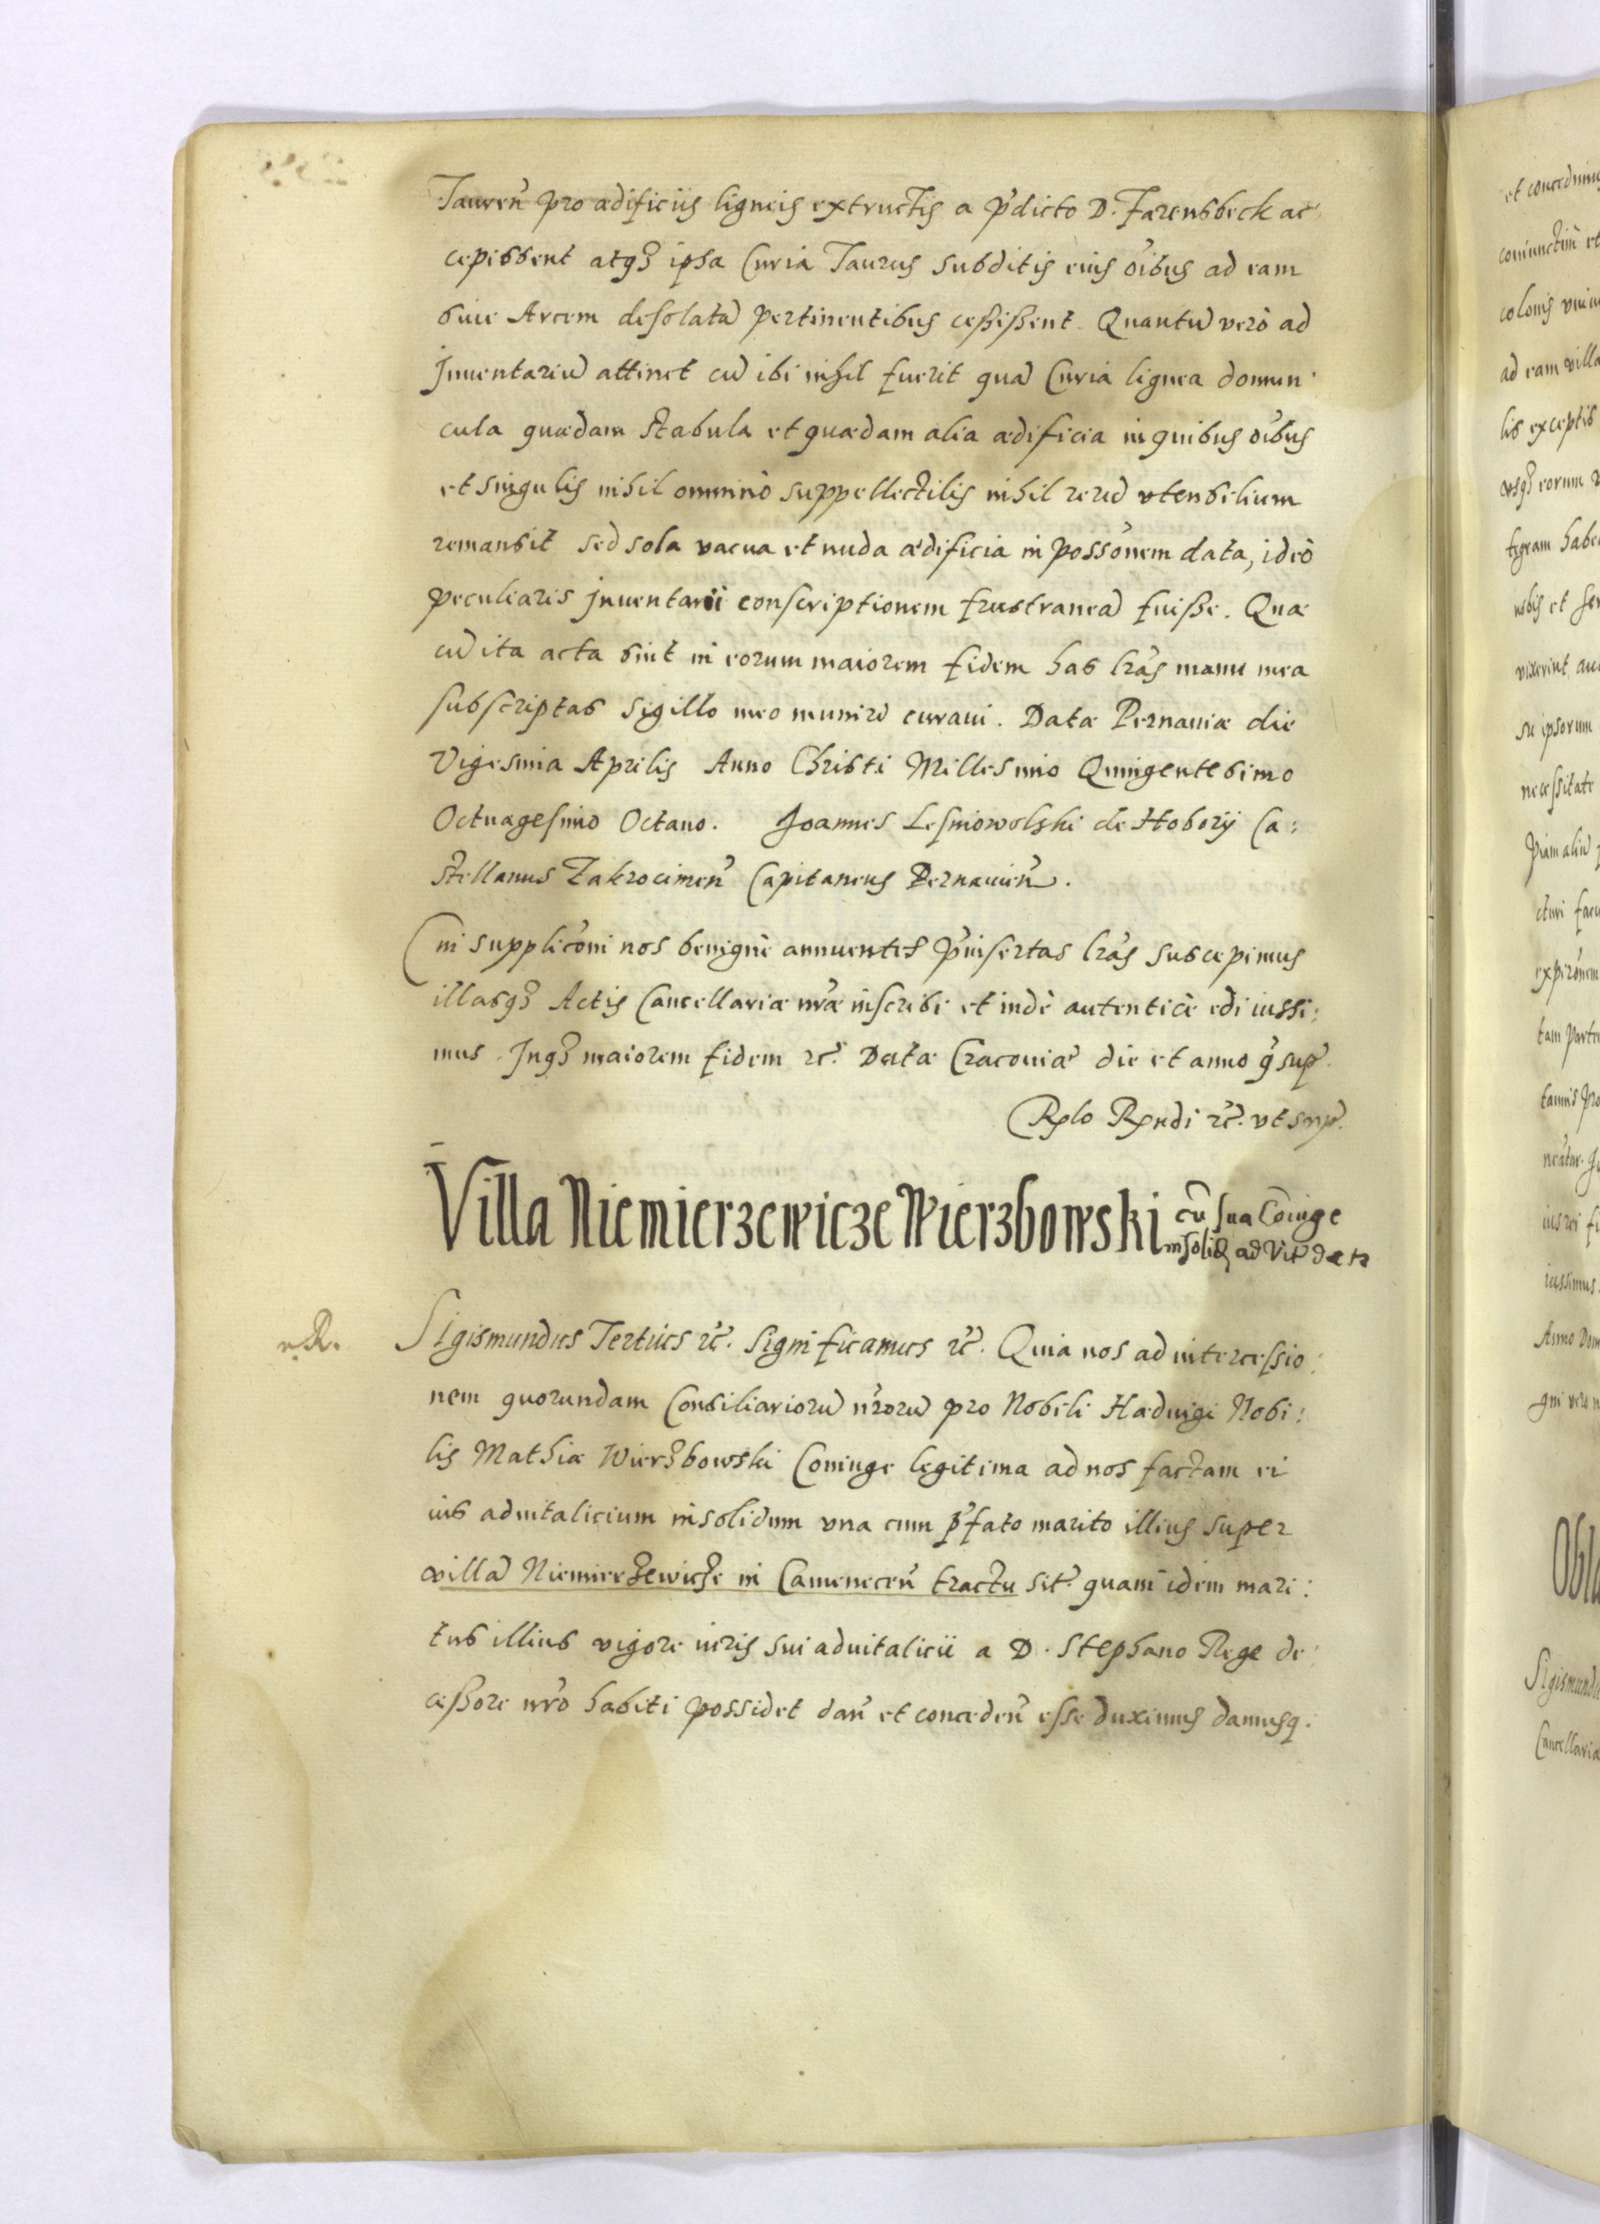 Tauren̄ pro ædificiis ligneis extructis a p̄dicto D. Farensbeck ac
cepissent atq₃ ipsa Curia Taurus subditis eius oībus ad eam
siue Arcem desolatā pertinentibus cessissent. Quantū verò ad
Jnuentariū attinet cū ibi nihil fuerit quā Curia lignea domun:
cula quædam stabula et quædam alia ædificia in quibus oībus
et singulis nihil omninò suppellectilis nihil rerū vtensilium
remansit sed sola vacua et nuda ædificia in possōnem data, ideò
peculiaris Jnuentarii conscriptionem frustraneā fuisse. Quæ
cū ita acta sint in eorum maiorem fidem has lrās manu mea
subscriptas sigillo meo munirè curaui. Datæ Pernauiæ die
Vigesima Aprilis Anno Christi Millesimo Quingentesimo
Octuagesimo Octauo. Joannes Lesniowolski de Hobory Ca:
stellanus Zakrocimen̄ Capitaneus Pernauien̄.
Cui supplicōni nos benignè annuentes p̄insertas lrās suscepimus
illasq₃ Actis Cancellariæ nrǣ inscribi et indè autenticè edi iussi:
mus. Jnq₃ maiorem fidem rc̄. Datæ Cracouiæ die et anno q̄ sup̄.
Rplo Rpndi rc̄. vt sup̄.
Villa Niemierzewicze Wierzbowski cū sua Cōiuge
insolid ad Vit dat
R.
Sigismundus Tertius rc̄. Significamus rc̄. Quia nos ad intercessio:
nem quorundam Consiliariorū nr̄orū pro Nobili Hæduigi Nobi:
lis Mathiæ Wierzbowski Coniuge legitima ad nos factam ei
ius aduitalicium insolidum vna cum p̄fato marito illius super
villā Niemierzewicze in Camenecen̄ tractu sit̄. quam idem mari:
tus illius vigore iuris sui aduitalicii a D. Stephano Rege de:
cessore nrō habiti possidet dan̄ et conceden̄ esse duximus damusq.